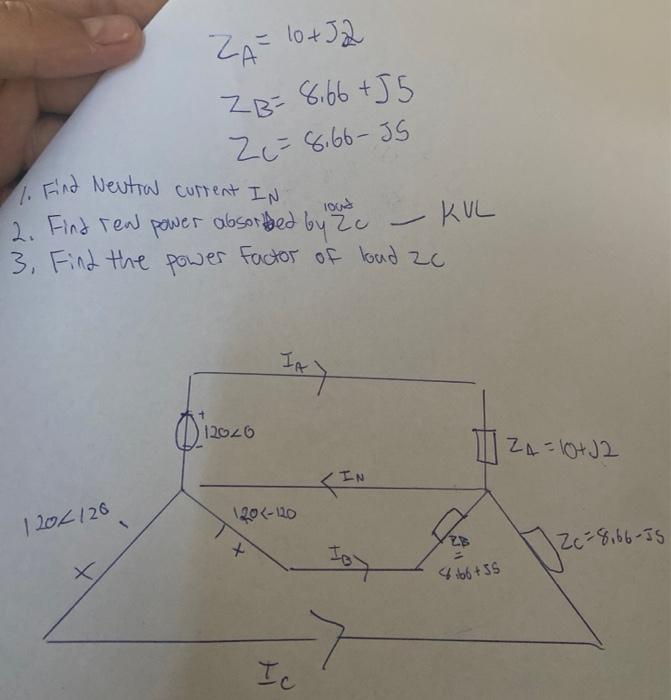 ZA= 10+J2
ZB= 8.66+J5
ZC= 8.66-J5
1. Find Neutral current IN
2. Find real power absorbed by load ZC — KVL
3. Find the power factor of load ZC
IA
+
-
120<0
ZA=10+J2
IN
120<120
120<-120
+
+
IB
ZB
=
8.66+J5
ZC=8.66-J5
IC